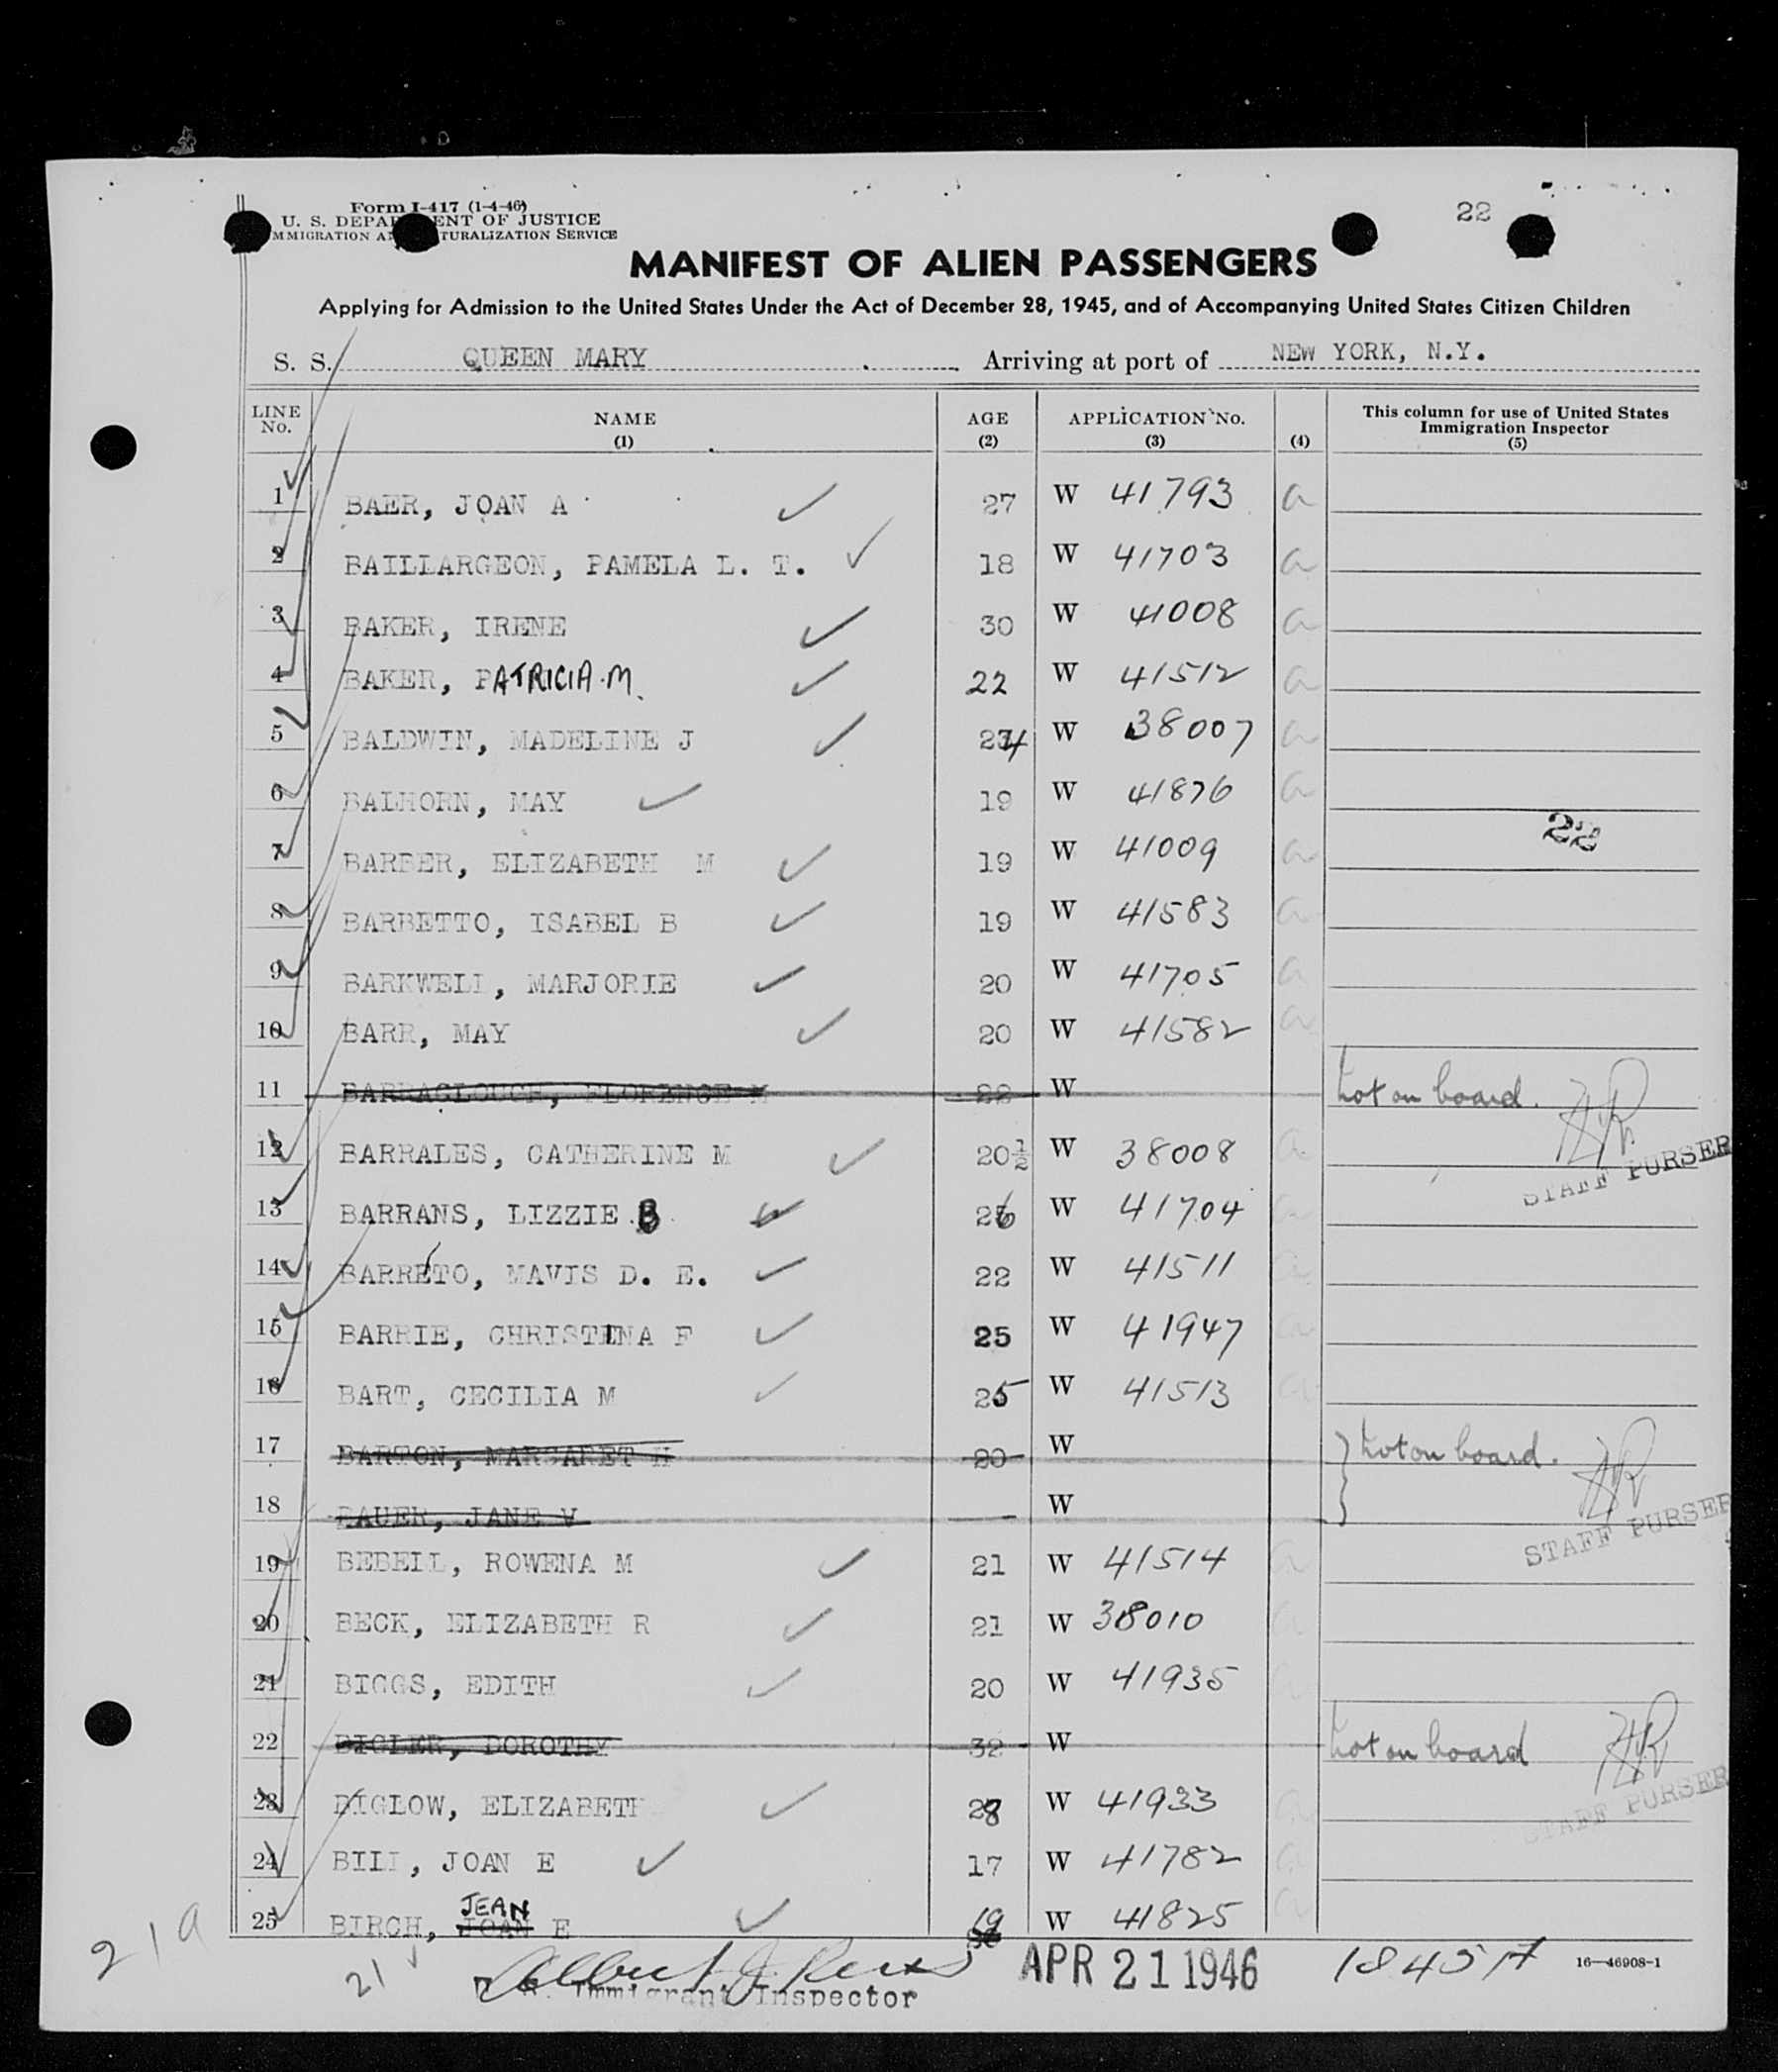 Form I-417 (1-4-46)
U. S. DEPARTMENT OF JUSTICE
IMMIGRATION AND NATURALIZATION SERVICE
22
MANIFEST OF ALIEN PASSENGERS
Applying for Admission to the United States Under the Act of December 28, 1945, and of Accompanying United States Citizen Children
S. S. QUEEN MARY Arriving at port of NEW YORK, N.Y.
LINE No. NAME (1) AGE (2) APPLICATION No. (3) (4) This column for use of United States Immigration Inspector (5)
1 BAER, JOAN A 27 W 41793 a
2 BAILLARGEON, PAMELA L. T. 18 W 41703 a
3 BAKER, IRENE 30 W 41008 a
4 BAKER, PATRICIA M. 22 W 41512 a
5 BALDWIN, MADELINE J 24 W 38007 a
6 BALHORN, MAY 19 W 41876 a
7 BARBER, ELIZABETH M 19 W 41009 a
22
8 BARBETTO, ISABEL B 19 W 41583 a
9 BARKWELL, MARJORIE 20 W 41705 a
10 BARR, MAY 20 W 41582 a
11 BARRACLOUGH, FLORENCE M 22 W not on board.
12 BARRALES, CATHERINE M 20 1/2 W 38008 a
STAFF PURSER
13 BARRANS, LIZZIE B 26 W 41704 a
14 BARRETO, MAVIS D. E. 22 W 41511 a
15 BARRIE, CHRISTINA F 25 W 41947 a
16 BART, CECILIA M 25 W 41513 a
17 BARTON, MARGARET H 20 W not on board.
18 BAUER, JANE V W
STAFF PURSER
19 BEBELL, ROWENA M 21 W 41514 a
20 BECK, ELIZABETH R 21 W 38010 a
21 BIGGS, EDITH 20 W 41935 a
22 BIGLER, DOROTHY 32 W not on board
23 BIGLOW, ELIZABETH 28 W 41933 a
STAFF PURSER
24 BILL, JOAN E 17 W 41782 a
25 BIRCH, JOAN JEAN E 19 W 41825 a
21a
21
Immigrant Inspector
APR 21 1946
16—46908-1